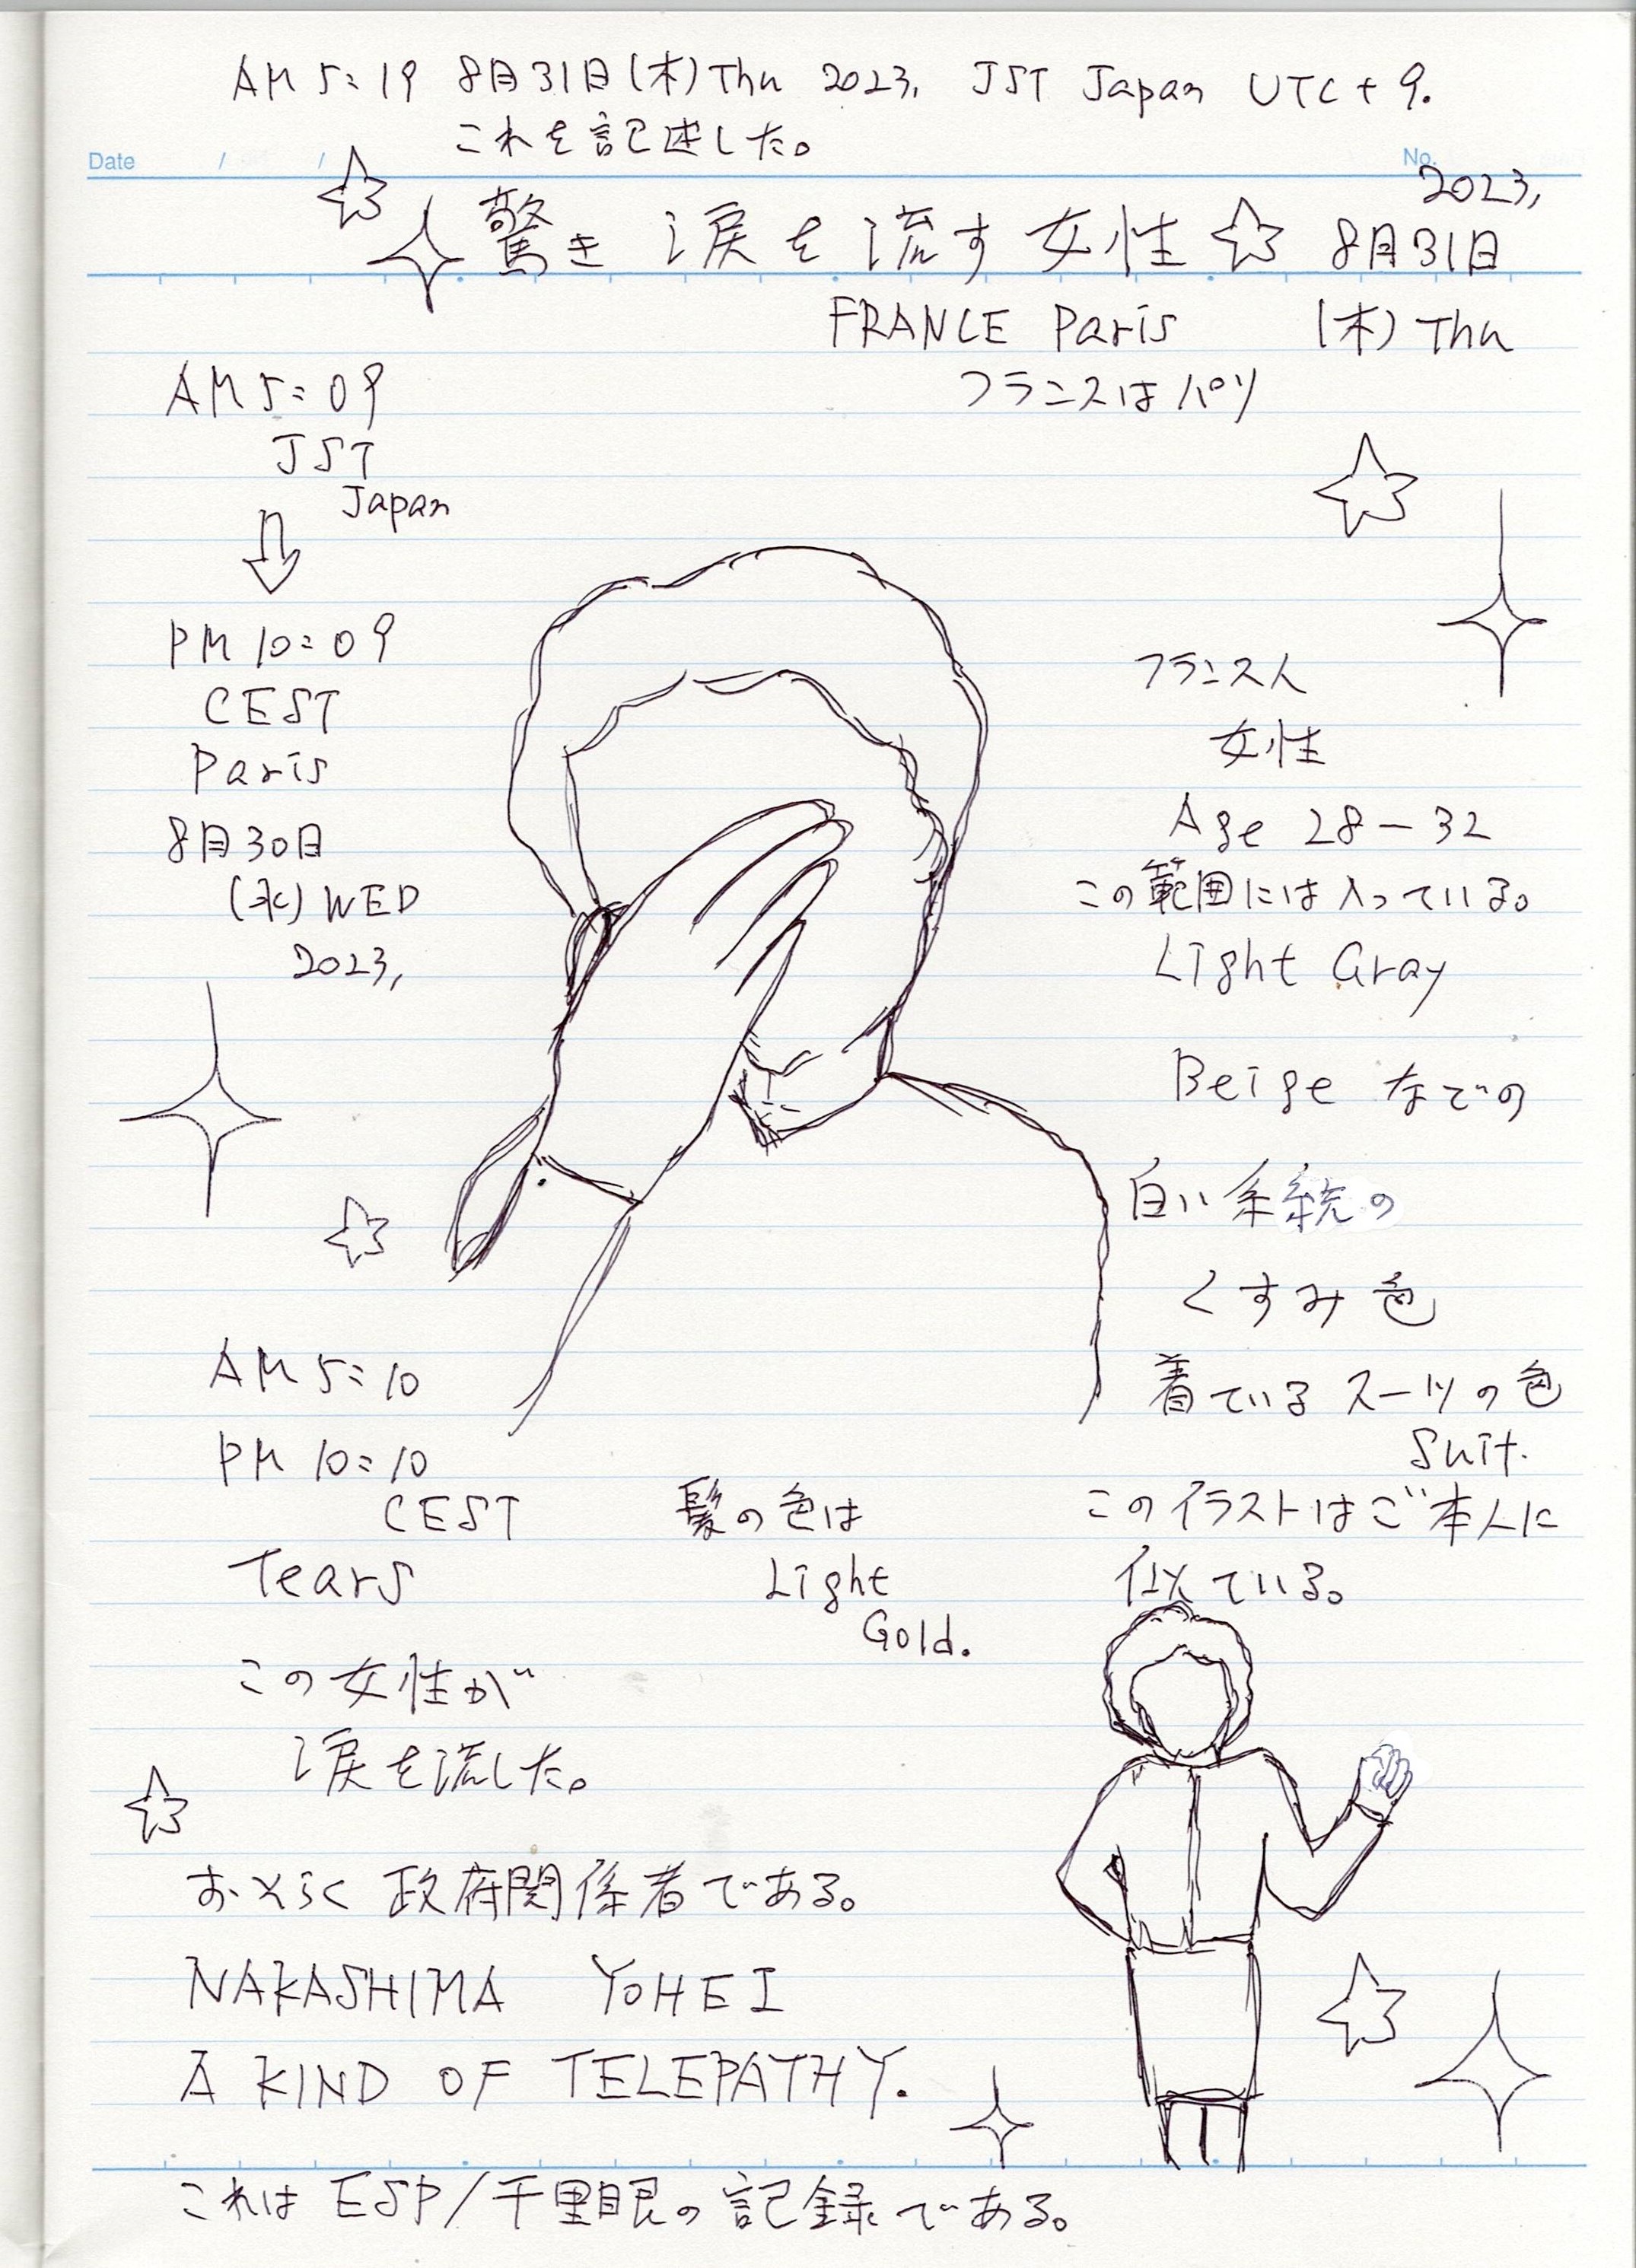 AM 5:19 8月31日(木)Thu 2023, JST Japan UTC+9.
これを記述した。
Date / /
No.
2023,
驚き 涙を流す女性
8月31日
FRANCE Paris
(木) Thu
フランスはパリ
AM 5:09
JST
Japan
PM 10:09
CEST
Paris
8月30日
(水) WED
2023,
フランス人
女性
Age 28-32
この範囲には入っている。
Light Gray
Beige などの
白い系統の
くすみ色
着ているスーツの色
Suit.
このイラストはご本人に
似ている。
AM 5:10
PM 10:10
CEST
Tears
髪の色は
Light
Gold.
この女性が
涙を流した。
おそらく政府関係者である。
NAKASHIMA YOHEI
A KIND OF TELEPATHY.
これは ESP/千里眼の記録である。